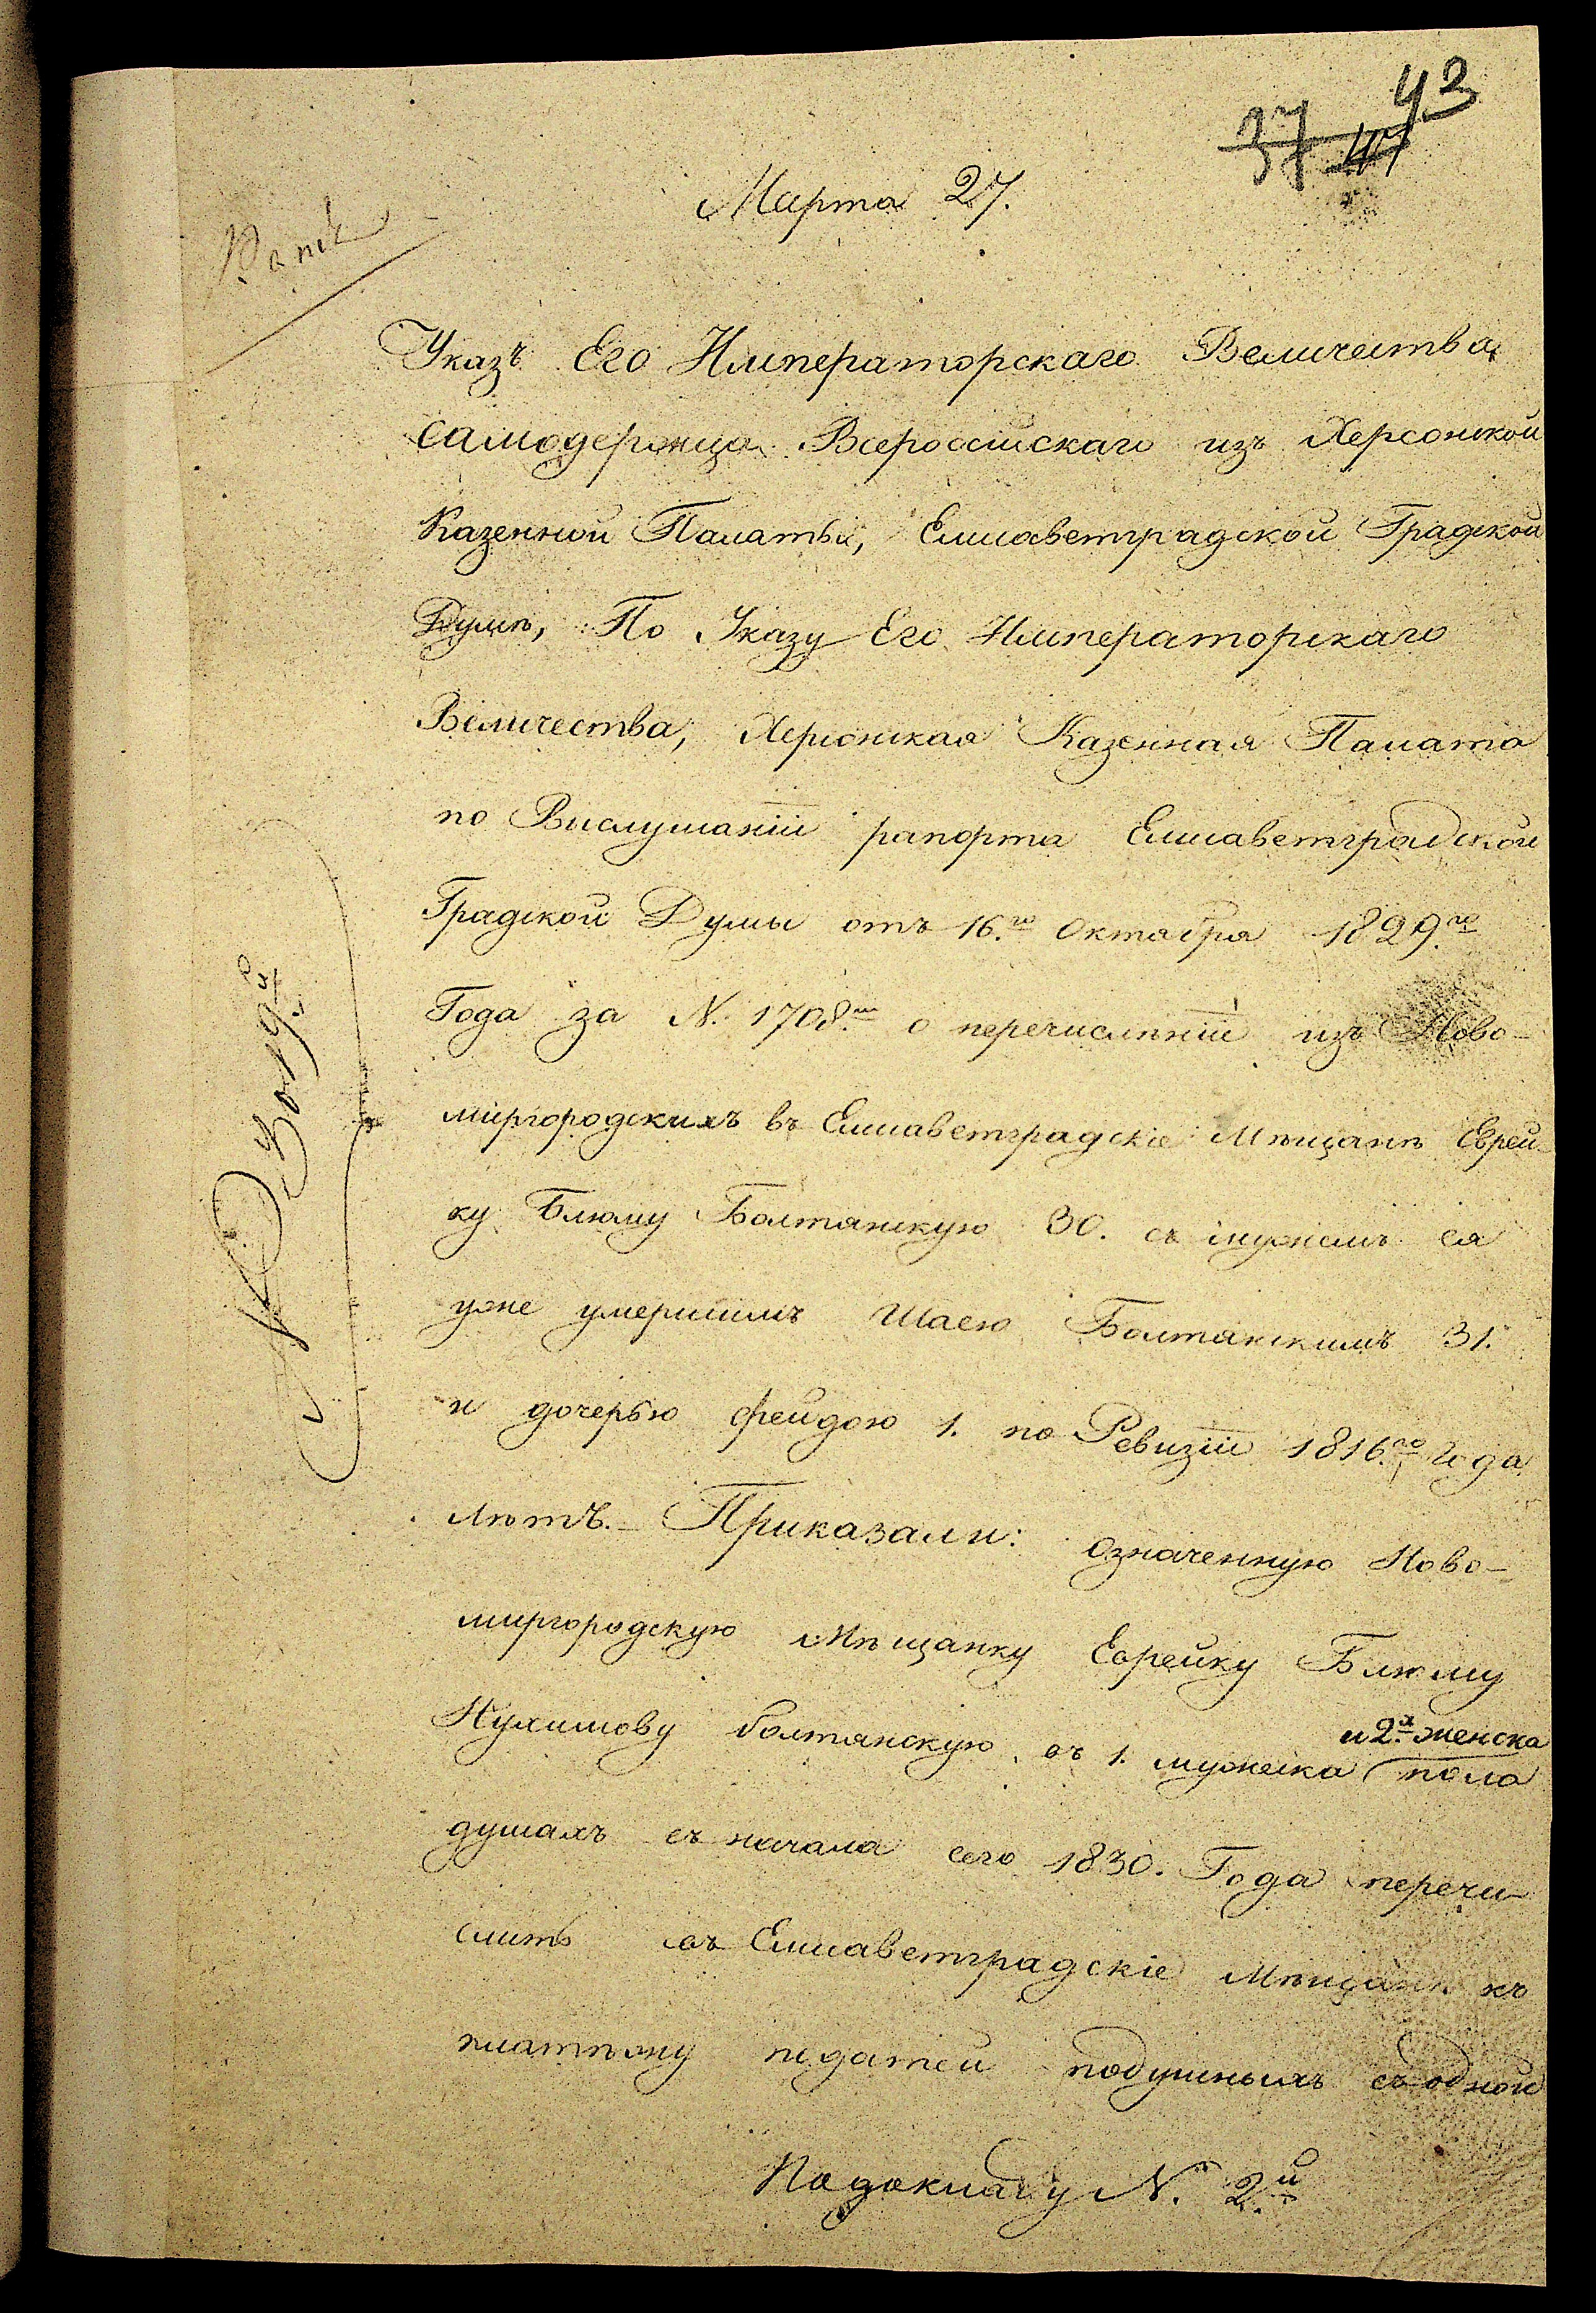 43
37
Марта 27.
Указъ Его Императорскаго Величества
Самодержца Всероссійскаго изъ Херсонской
Казенной Палаты, Елисаветградской Градской
Думѣ, По Указу Его Императорскаго
Величества, Херсонская Казенная Палата
по Выслушаніи рапорта Елисаветградской
Градской Думы отъ 16.го Октября 1829.го
Года за N. 1708.м о перечисленіи изъ Ново-
миргородскихъ въ Елисаветградскіе Мѣщанѣ Еврей-
ку Блюму Болтянскую 30. съ мужемъ ея
уже умершимъ Шаею Болтянскимъ 31.
и дочерью фейдою 1. по Ревизіи 1816.го Года
лѣтъ. Приказали: означенную Ново-
миргородскую Мѣщанку Еврейку Блюму
Нухимову болтянскую въ 1. мужеска и 2.х женска пола
душахъ съ начала сего 1830. Года перечи-
слить въ Елисаветградскіе Мѣщанѣ къ
платѣжу податей подушныхъ съ одной
По докладу N. 2.й